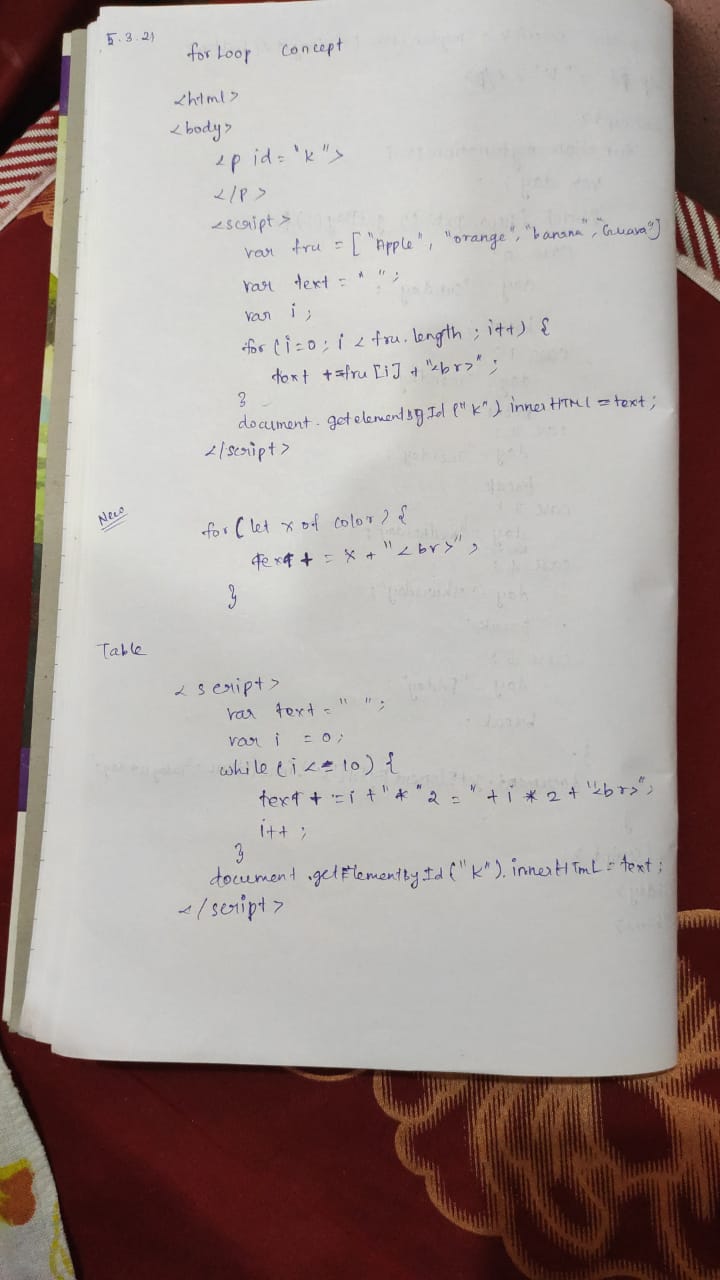 5.3.21
for Loop Concept
<html>
<body>
<p id="k">
</p>
<script>
var fru = ["Apple", "orange", "banana", "Guava"]
var text = " ";
var i;
for (i=0; i < fru.length ; i++) {
text +=fru [i] + "<br>";
}
document.getelementbyId ("k") innerHTMl = text;
</script>
New
for (let x of color) {
text + = x + "<br>";
}
Table
<script>
var text = " ";
var i = 0;
while (i <= 10) {
text + = i + "*" 2 = " + i * 2 + "<br>";
i++ ;
}
document.getElementbyId ("k"). innerHTmL = text;
</script>